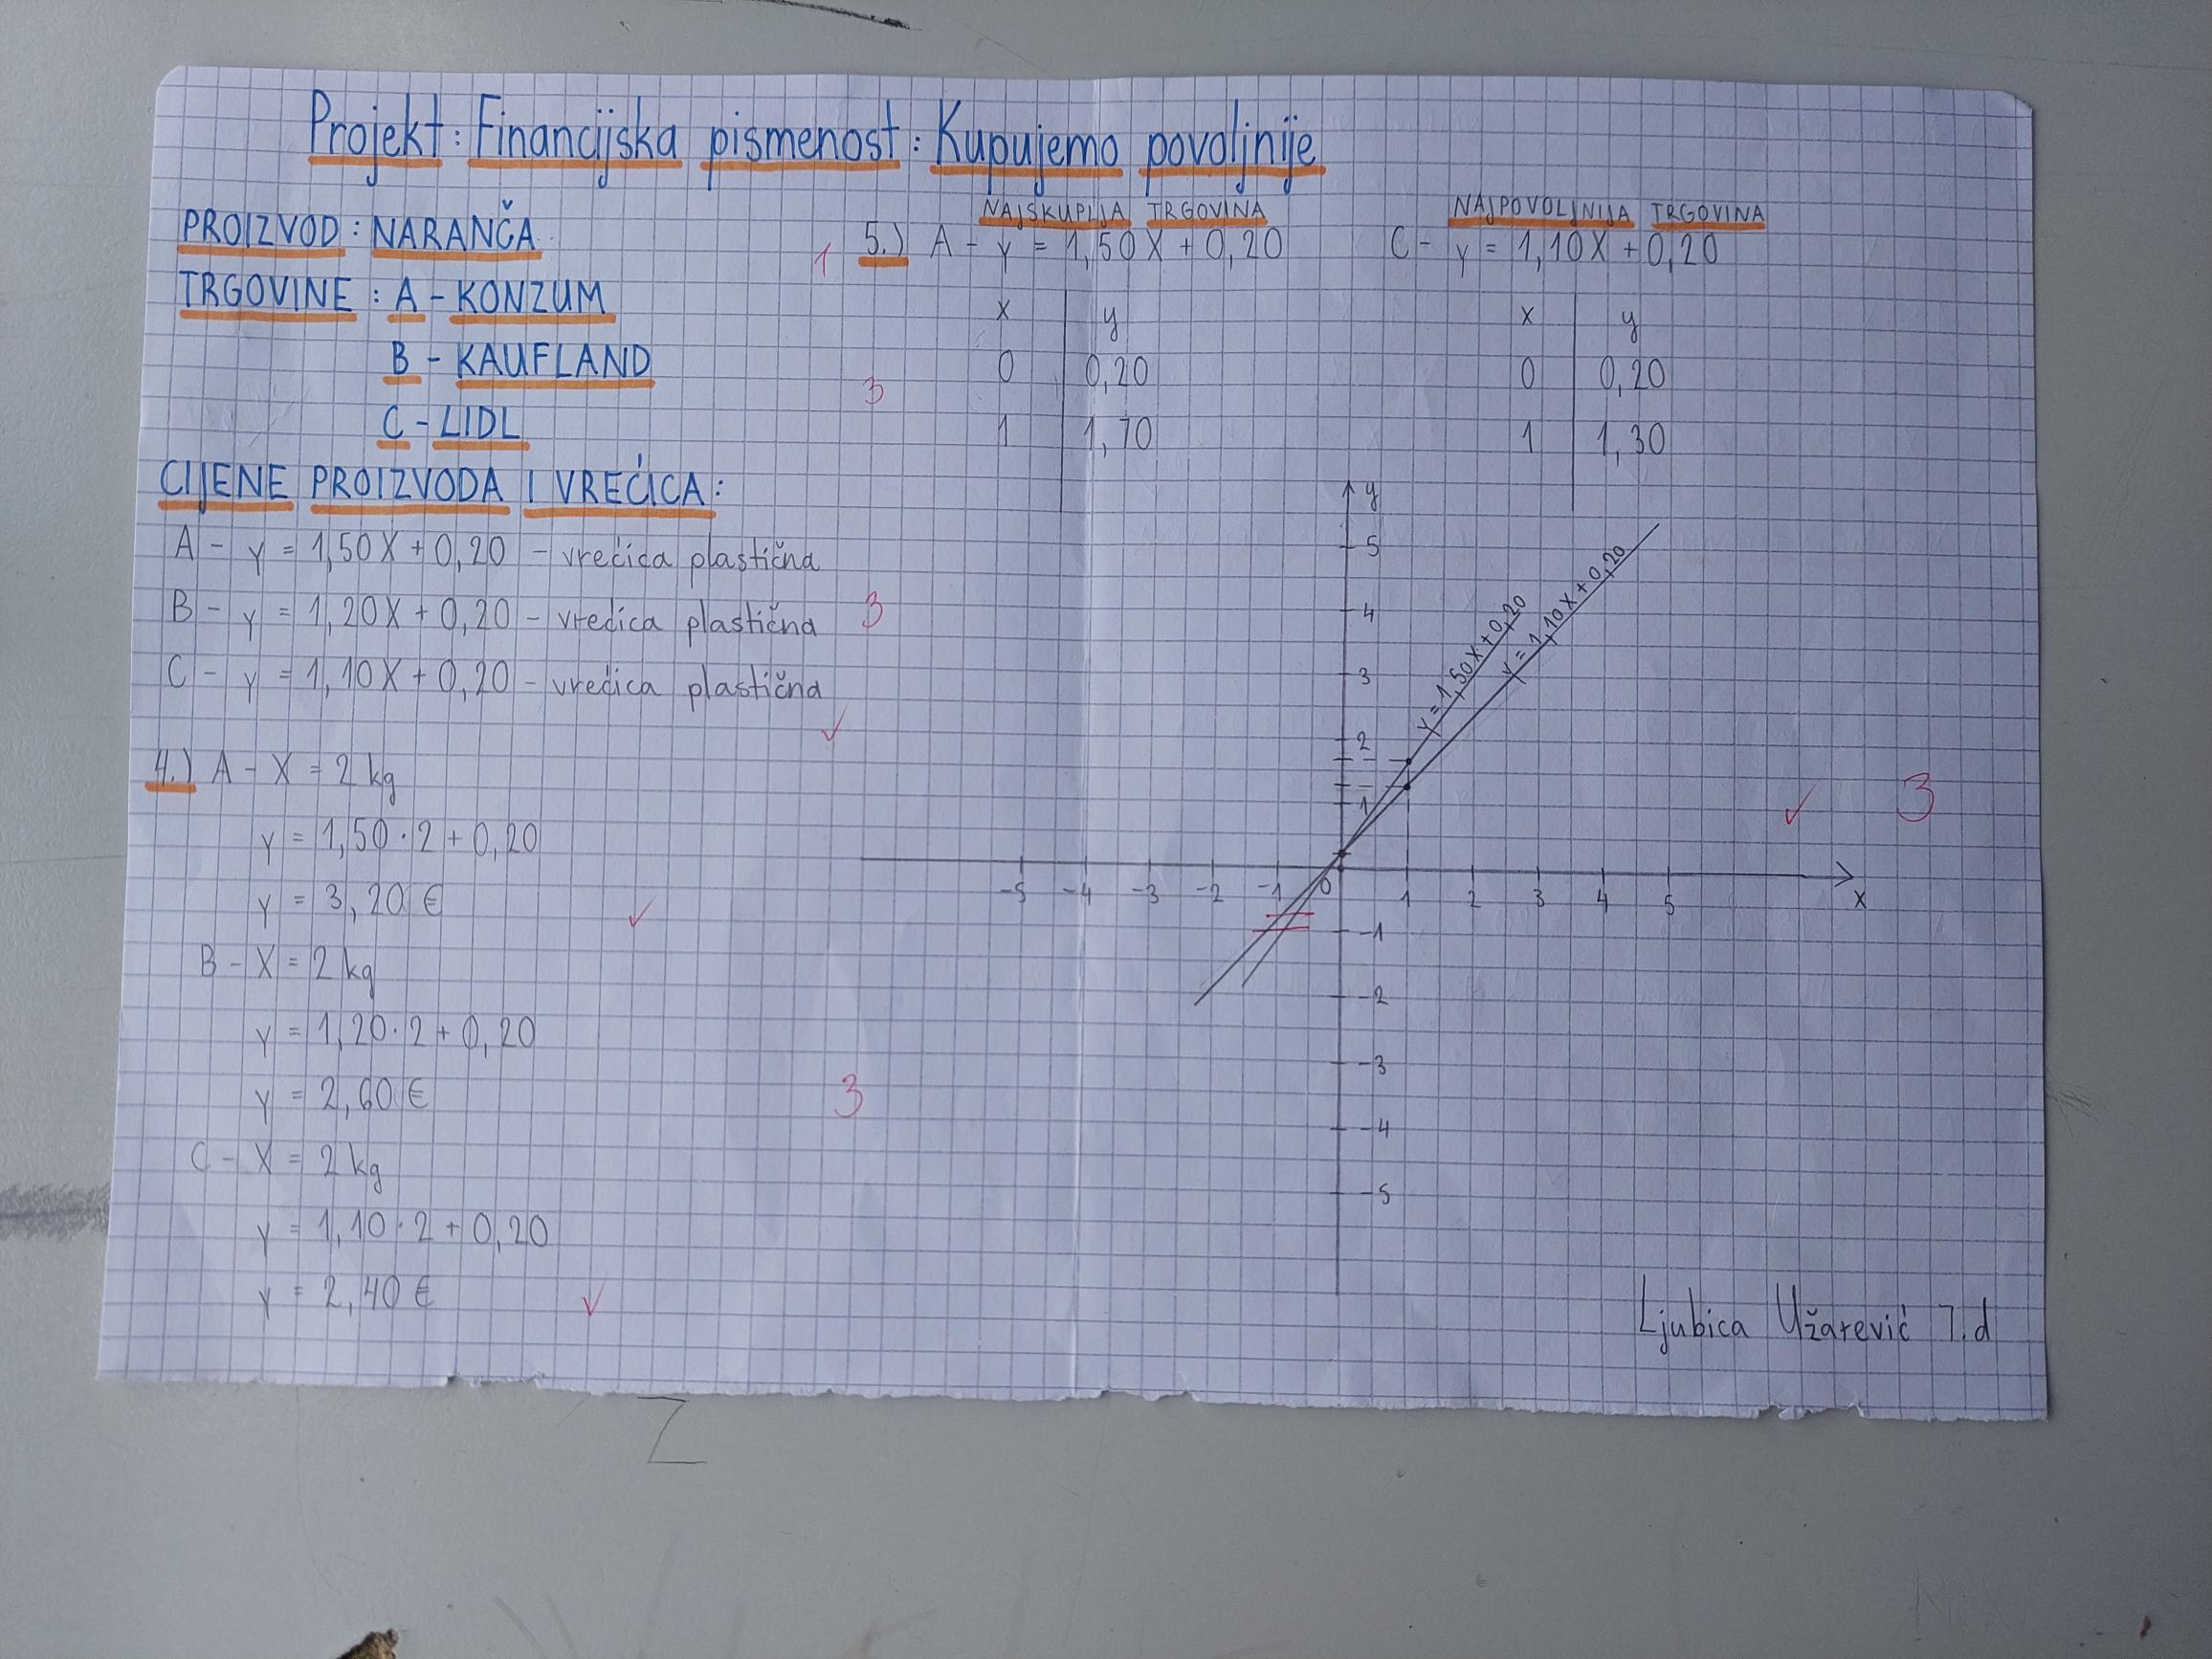 Projekt: Financijska pismenost: Kupujemo povoljnije
PROIZVOD: NARANČA
TRGOVINE: A - KONZUM
B - KAUFLAND
C - LIDL
CIJENE PROIZVODA I VREĆICA:
A - y = 1,50X + 0,20 - vrećica plastična
B - y = 1,20X + 0,20 - vrećica plastična
3
C - y = 1,10X + 0,20 - vrećica plastična
4.) A - X = 2 kg
y = 1,50 · 2 + 0,20
y = 3,20 €
B - X = 2 kg
y = 1,20 · 2 + 0,20
y = 2,60 €
3
C - X = 2 kg
y = 1,10 · 2 + 0,20
y = 2,40 €
NAJSKUPLJA TRGOVINA
1
5.) A - y = 1,50X + 0,20
x y
0 0,20
3
1 1,70
NAJPOVOLJNIJA TRGOVINA
C - y = 1,10X + 0,20
x y
0 0,20
1 1,30
y
5
4
3
2
1
y = 1,50X + 0,20
y = 1,10X + 0,20
3
-5 -4 -3 -2 -1 0 1 2 3 4 5 x
-1
-2
-3
-4
-5
Ljubica Užarević 7.d
Z